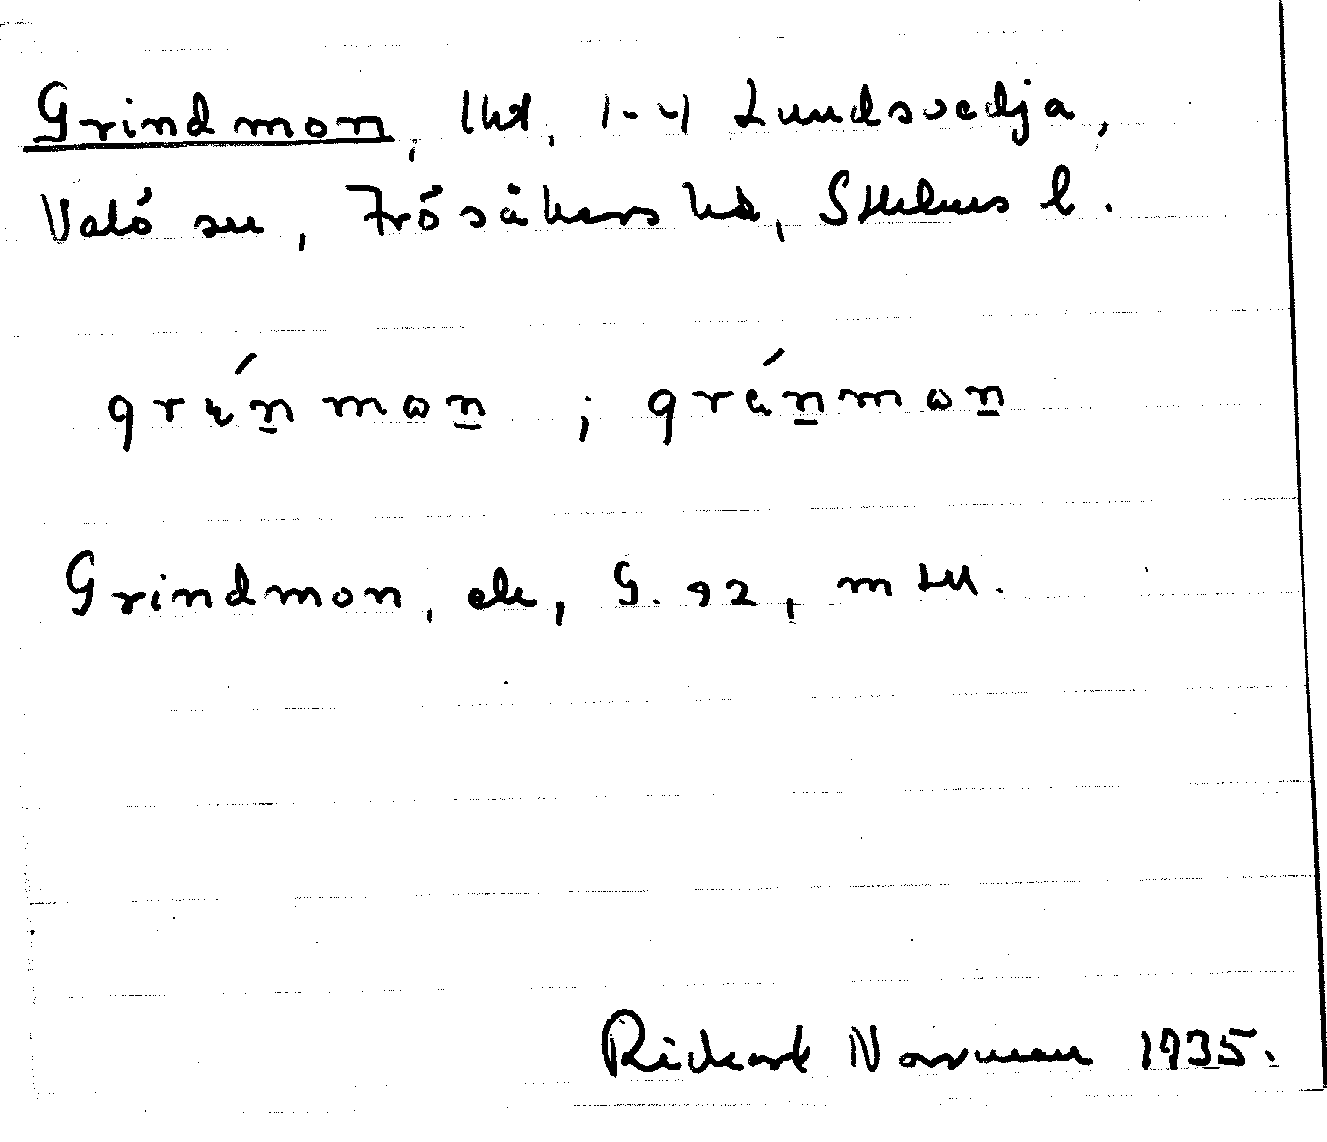 Grindmon, lht, 1-4 Lundsvedja,
Valö sn, Frösåkers hd, Sthlms l.
grɩ́n̲mωn̲ ; grǽn̲mωn̲
Grindmon, ek, G. 92, mtll.
Rickard Norrman 1935.